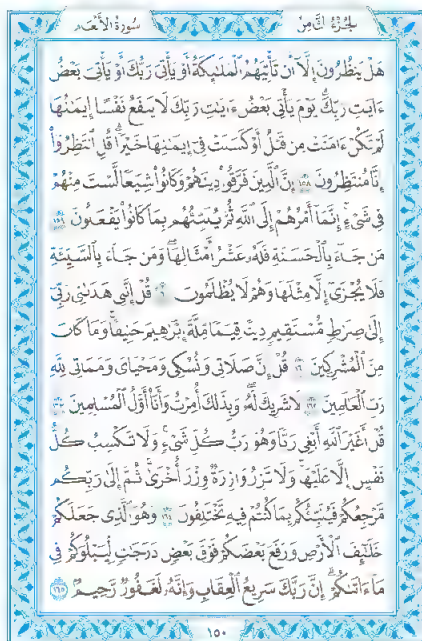 الجزء الثامن
سورة الأنعام
هَلْ يَنظُرُونَ إِلَّا أَن تَأْتِيَهُمُ الْمَلَٰٓئِكَةُ أَوْ يَأْتِىَ رَبُّكَ أَوْ يَأْتِىَ بَعْضُ
ءَايَٰتِ رَبِّكَ يَوْمَ يَأْتِى بَعْضُ ءَايَٰتِ رَبِّكَ لَا يَنفَعُ نَفْسًا إِيمَٰنُهَا
لَمْ تَكُنْ ءَامَنَتْ مِن قَبْلُ أَوْ كَسَبَتْ فِىٓ إِيمَٰنِهَا خَيْرًا قُلِ انتَظِرُوٓا۟
إِنَّا مُنتَظِرُونَ ١٥٨ إِنَّ الَّذِينَ فَرَّقُوا۟ دِينَهُمْ وَكَانُوا۟ شِيَعًا لَّسْتَ مِنْهُمْ
فِى شَىْءٍ إِنَّمَآ أَمْرُهُمْ إِلَى اللَّهِ ثُمَّ يُنَبِّئُهُم بِمَا كَانُوا۟ يَفْعَلُونَ ١٥٩
مَن جَآءَ بِالْحَسَنَةِ فَلَهُۥ عَشْرُ أَمْثَالِهَا وَمَن جَآءَ بِالسَّيِّئَةِ
فَلَا يُجْزَىٰٓ إِلَّا مِثْلَهَا وَهُمْ لَا يُظْلَمُونَ ١٦٠ قُلْ إِنَّنِى هَدَىٰنِى رَبِّىٓ
إِلَىٰ صِرَٰطٍ مُّسْتَقِيمٍ دِينًا قِيَمًا مِّلَّةَ إِبْرَٰهِيمَ حَنِيفًا وَمَا كَانَ
مِنَ الْمُشْرِكِينَ ١٦١ قُلْ إِنَّ صَلَاتِى وَنُسُكِى وَمَحْيَاىَ وَمَمَاتِى لِلَّهِ
رَبِّ الْعَٰلَمِينَ ١٦٢ لَا شَرِيكَ لَهُۥ وَبِذَٰلِكَ أُمِرْتُ وَأَنَا۠ أَوَّلُ الْمُسْلِمِينَ ١٦٣
قُلْ أَغَيْرَ اللَّهِ أَبْغِى رَبًّا وَهُوَ رَبُّ كُلِّ شَىْءٍ وَلَا تَكْسِبُ كُلُّ
نَفْسٍ إِلَّا عَلَيْهَا وَلَا تَزِرُ وَازِرَةٌ وِزْرَ أُخْرَىٰ ثُمَّ إِلَىٰ رَبِّكُم
مَّرْجِعُكُمْ فَيُنَبِّئُكُم بِمَا كُنتُمْ فِيهِ تَخْتَلِفُونَ ١٦٤ وَهُوَ الَّذِى جَعَلَكُمْ
خَلَٰٓئِفَ الْأَرْضِ وَرَفَعَ بَعْضَكُمْ فَوْقَ بَعْضٍ دَرَجَٰتٍ لِّيَبْلُوَكُمْ فِى
مَآ ءَاتَىٰكُمْ إِنَّ رَبَّكَ سَرِيعُ الْعِقَابِ وَإِنَّهُۥ لَغَفُورٌ رَّحِيمٌ ١٦٥
١٥٠